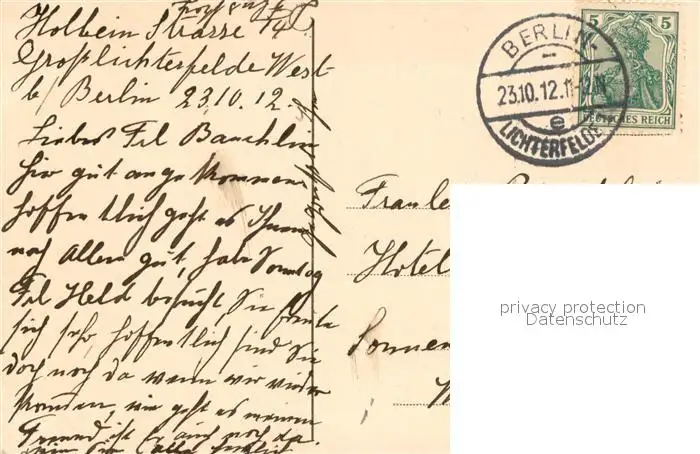 Holbein Strasse 141
Großlichterfelde West
b/ Berlin 23.10.12.
Liebes Frl Bauchlin
hier gut angekommen
hoffentlich geht es Ihnen
noch Allen gut, habe Sonntag
Frl Held besucht Sie freute
sich sehr hoffentlich sind Sie
doch noch da wenn wir wieder
kommen, wie geht es meinem
Freund ist Er auch noch da
BERLIN-
23.10.12.11-
e
LICHTERFELDE
5 5
DEUTSCHES REICH
Hotel
Sonnen
privacy protection
Datenschutz